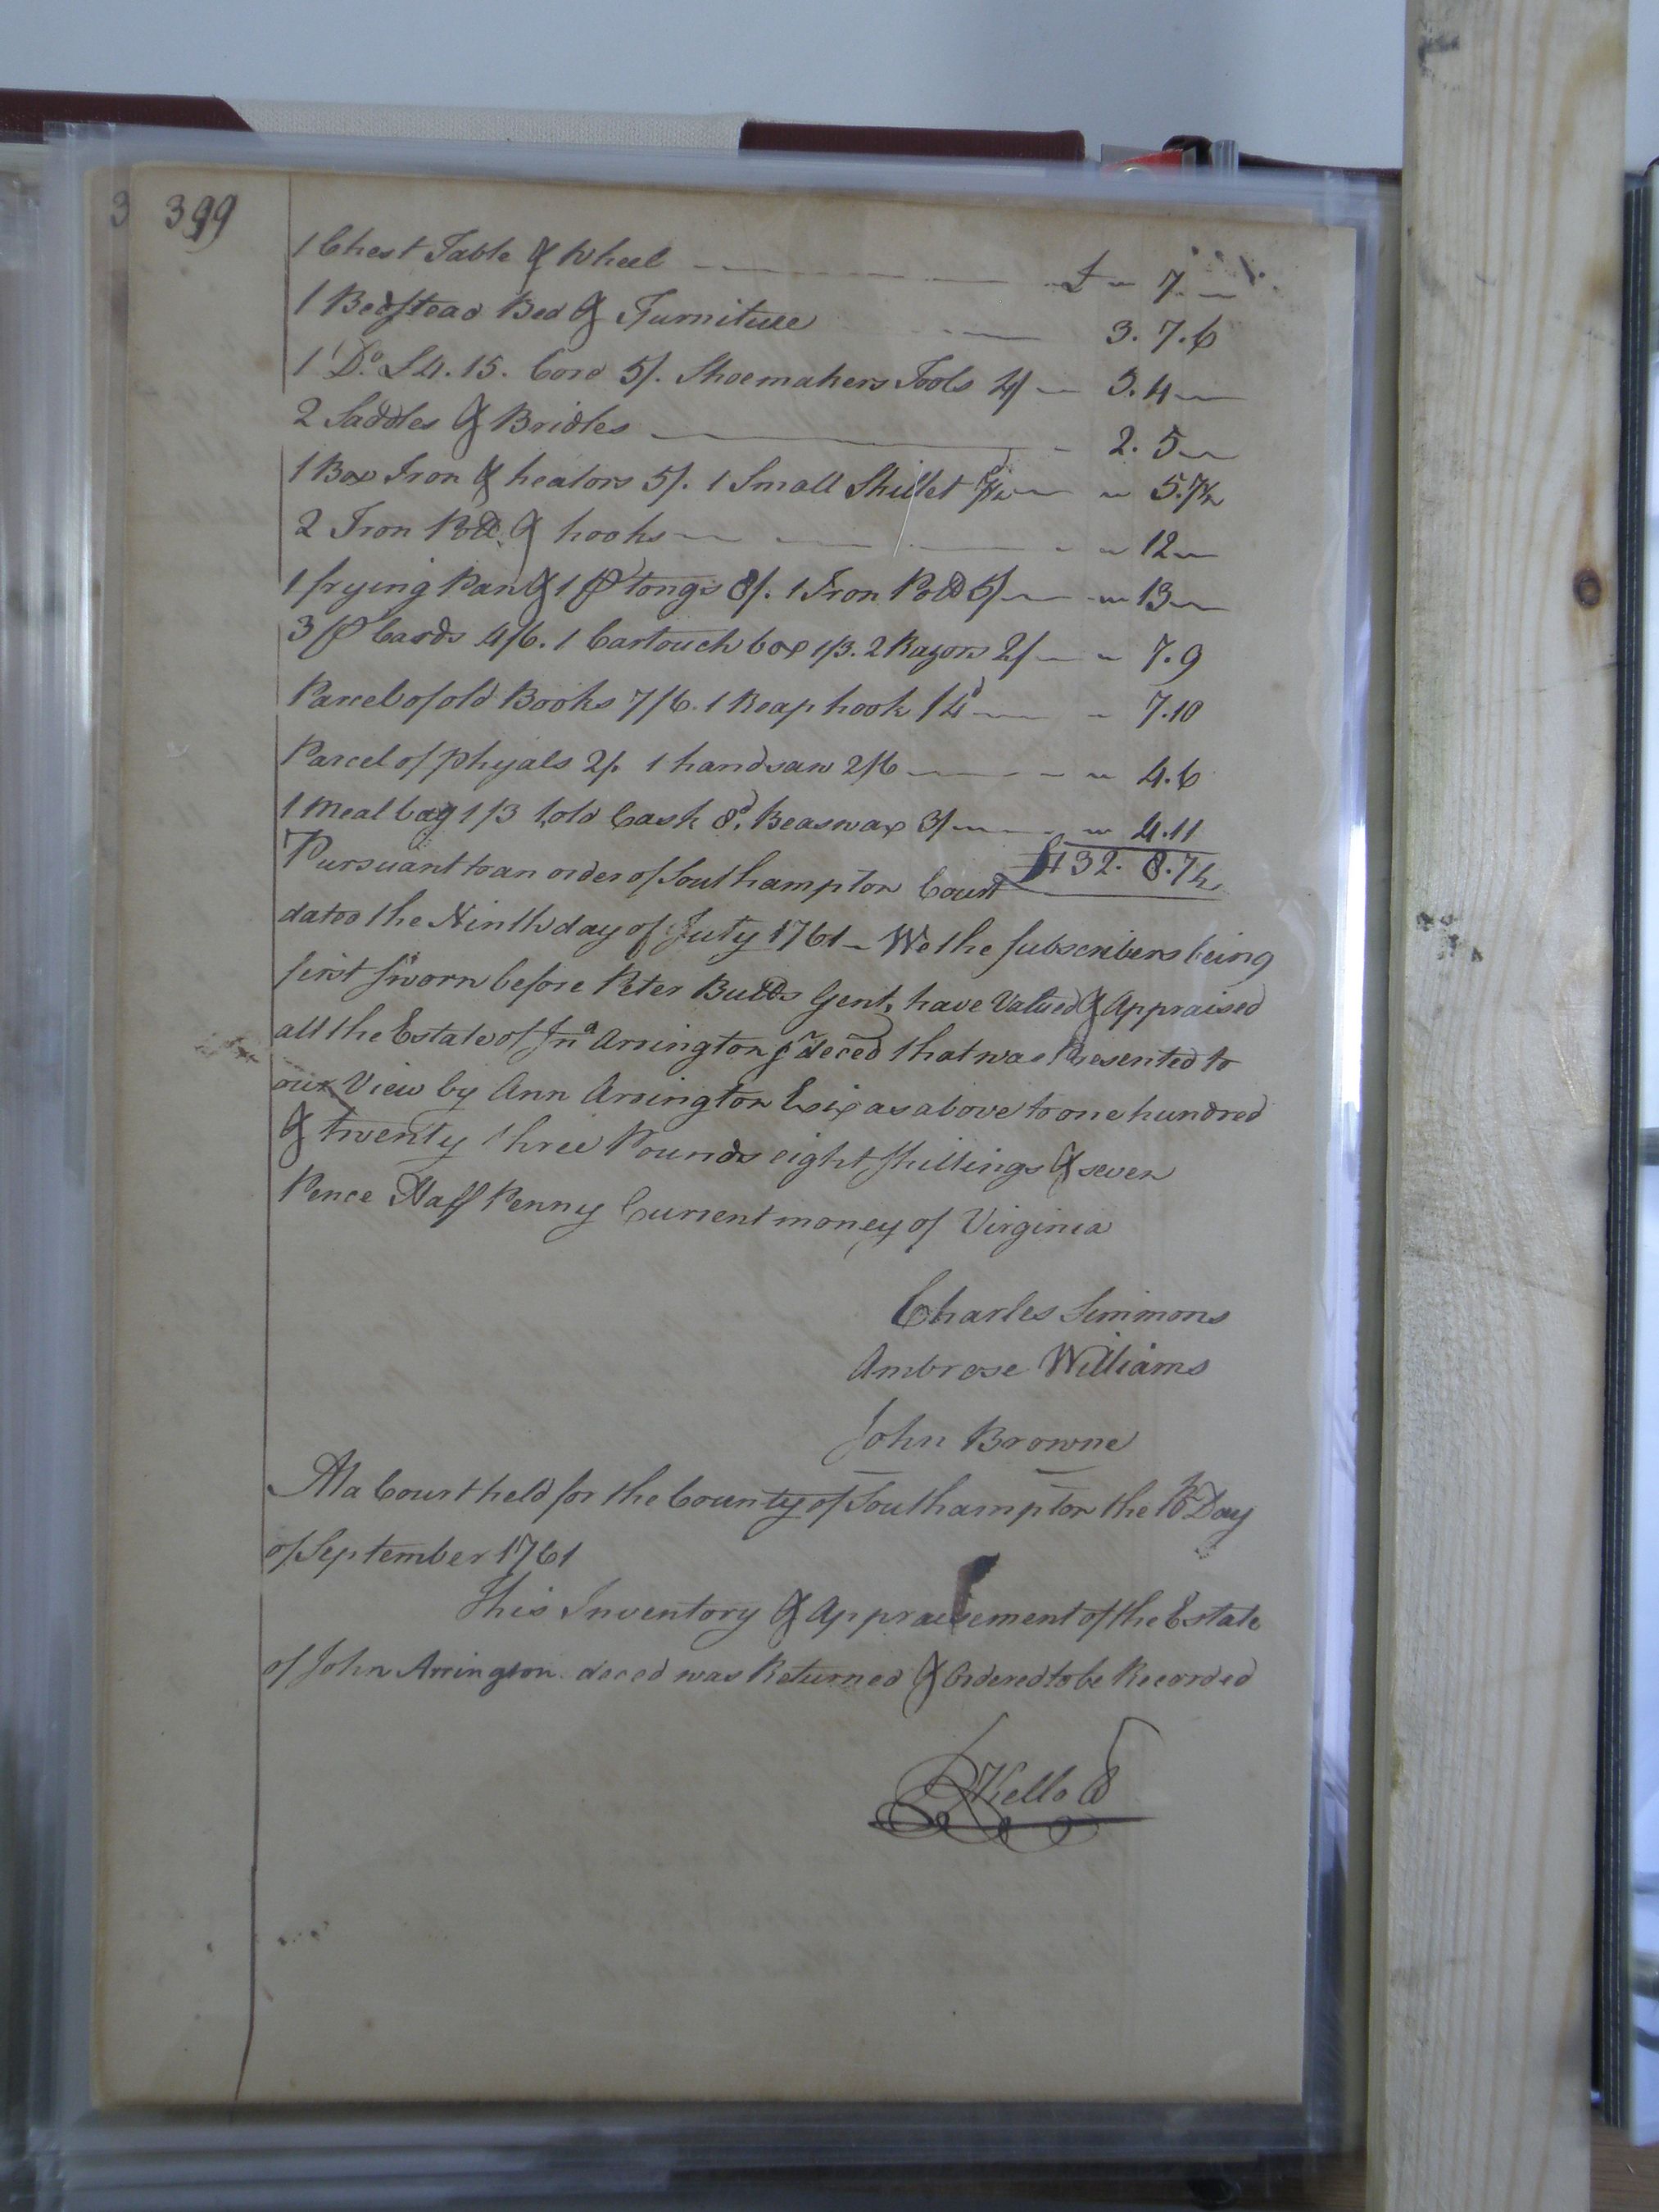 3 399
1 Chest Table & Wheel £ " 7 "
1 Bedstead Bed & Furniture 3. 7. 6
1 Do. £4. 15. Cord 5/. Shoemakers Tools 4/ 5. 4
2 Saddles & Bridles 2. 5
1 Box Iron & heators 5/. 1 Small Skillet 7½d " 5. 7½
2 Iron Potts & hooks " 12
1 frying Pan & 1 pr tongs 8/. 1 Iron Pott 5/ " 13
3 pr Cards 4/6. 1 Cartouch box 1/3. 2 Razors 2/ " 7. 9
Parcel of old Books 7/6. 1 Reap hook /4d " 7. 10
Parcel of phyals 2/. 1 handsaw 2/6 " 4. 6
1 Meal bag 1/3 1 old Cask 8d. Beaswax 3/ " 4. 11
£132. 8. 7½
Pursuant to an order of Southampton Court
dated the Ninth day of July 1761 - We the Subscribers being
first Sworn before Peter Butts Gent, have Valued & Appraised
all the Estate of Jno Arrington decd that was Presented to
our View by Ann Arrington Exix as above to one hundred
& twenty three Pounds eight Shillings & seven
Pence Half Penny Current money of Virginia
Charles Simmons
Ambrose Williams
John Browne
At a Court held for the County of Southampton the 10th Day
of September 1761
This Inventory & Appraisement of the Estate
of John Arrington decd was Returned & Ordered to be Recorded
R Kello